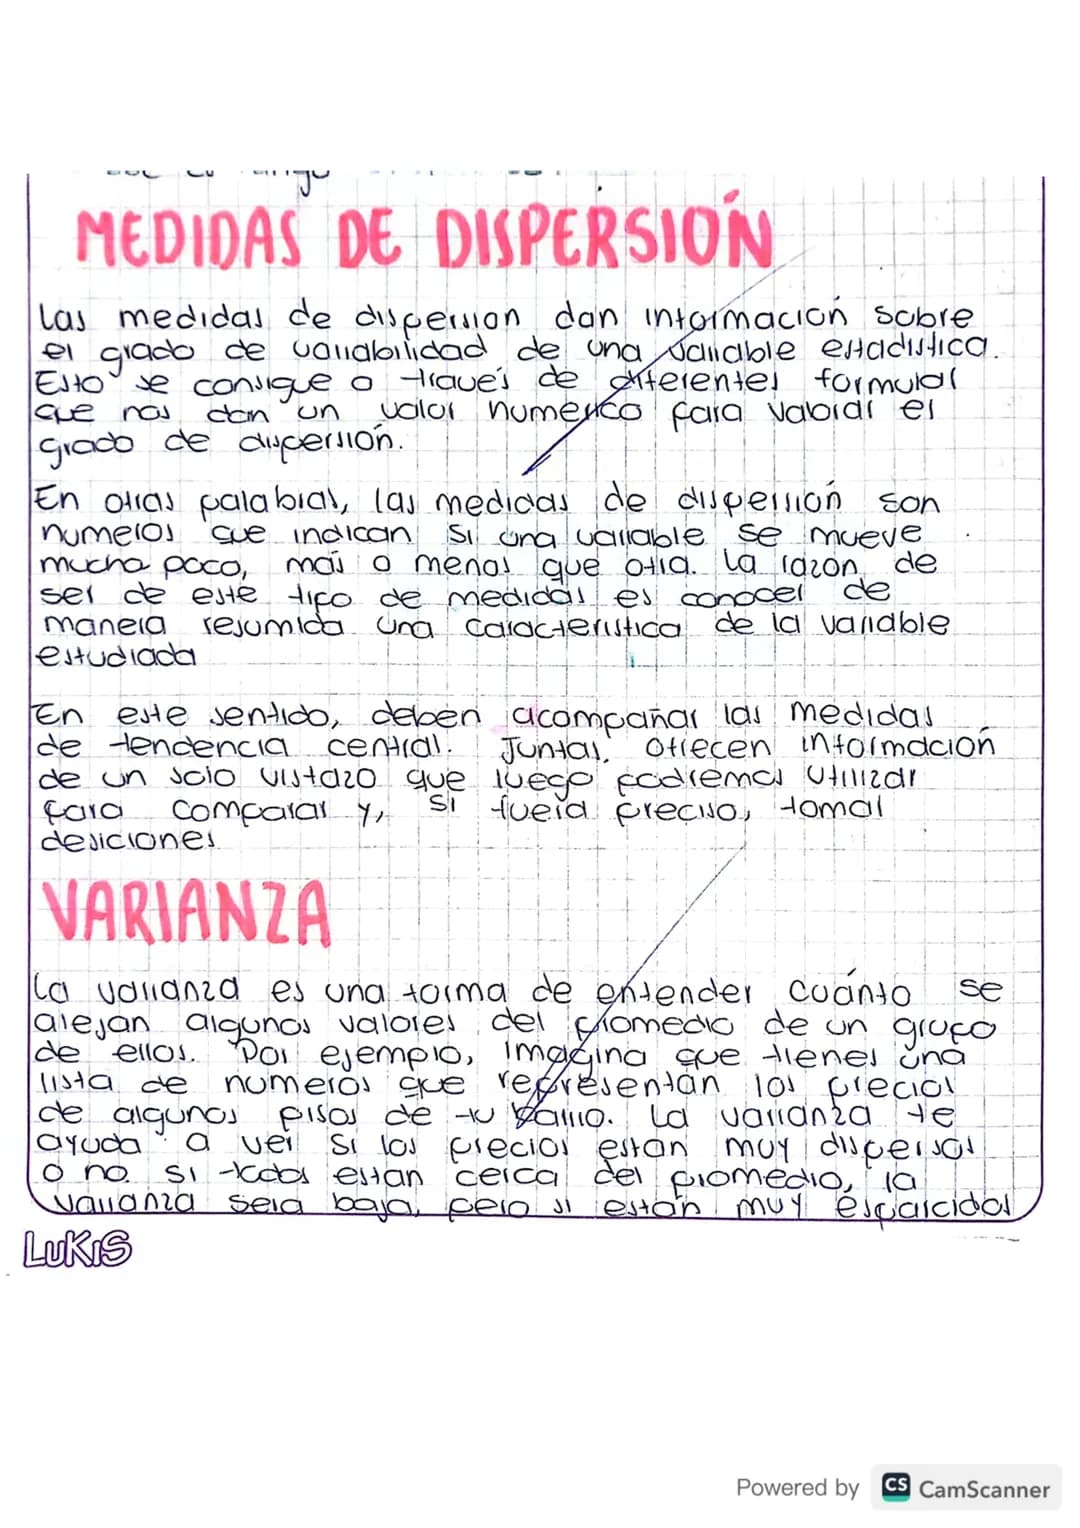 MEDIDAS DE DISPERSIÓN
Las medidas de dispersion dan información sobre
el grado de variabilidad de una variable estadistica.
Esto se consigue a través de diferentes formulas
que nos dan un valor numerico para valorar el
grado de dispersión.
En otras palabras, las medidas de dispersión son
numeros que indican si una variable se mueve
mucho poco, más o menos que otra. La razon de
ser de este tipo de medidas es conocer de
manera resumida una caracteristica de la variable
estudiada
En este sentido, deben acompañar las medidas
de tendencia central. Juntas, ofrecen información
de un solo vistazo que luego podremos utilizar
para comparar y, si fuera preciso, tomar
desiciones
VARIANZA
La varianza es una forma de entender cuánto se
alejan algunos valores del promedio de un grupo
de ellos. Por ejemplo, imagina que tienes una
lista de numeros que representan los precios
de algunos pisos de tu barrio. La varianza te
ayuda a ver si los precios están muy dispersos
o no. si todos estan cerca del promedio, la
varianza sera baja, pero si están muy esparcidos
LUKIS
Powered by CS CamScanner